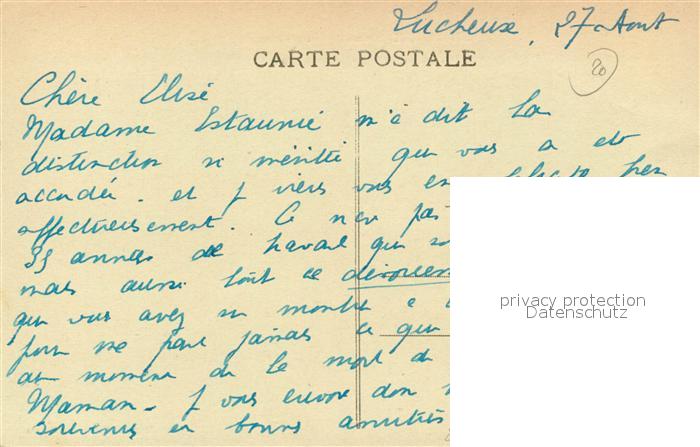 Lucheux, 27 Aout
CARTE POSTALE
20
Chère Elisé
Madame Estaunié m'a dit la
distinction si mérité que vous a été
accordée. et j viens vous en
affectueusement. Ce n'es pas
35 années de travail qui
mais aussi tout ce dévouem
que vous avez
jamais ce que
au moment de la mort de
Maman. J vous envoie don
souvenirs et bonnes amitiés
privacy protection
Datenschutz